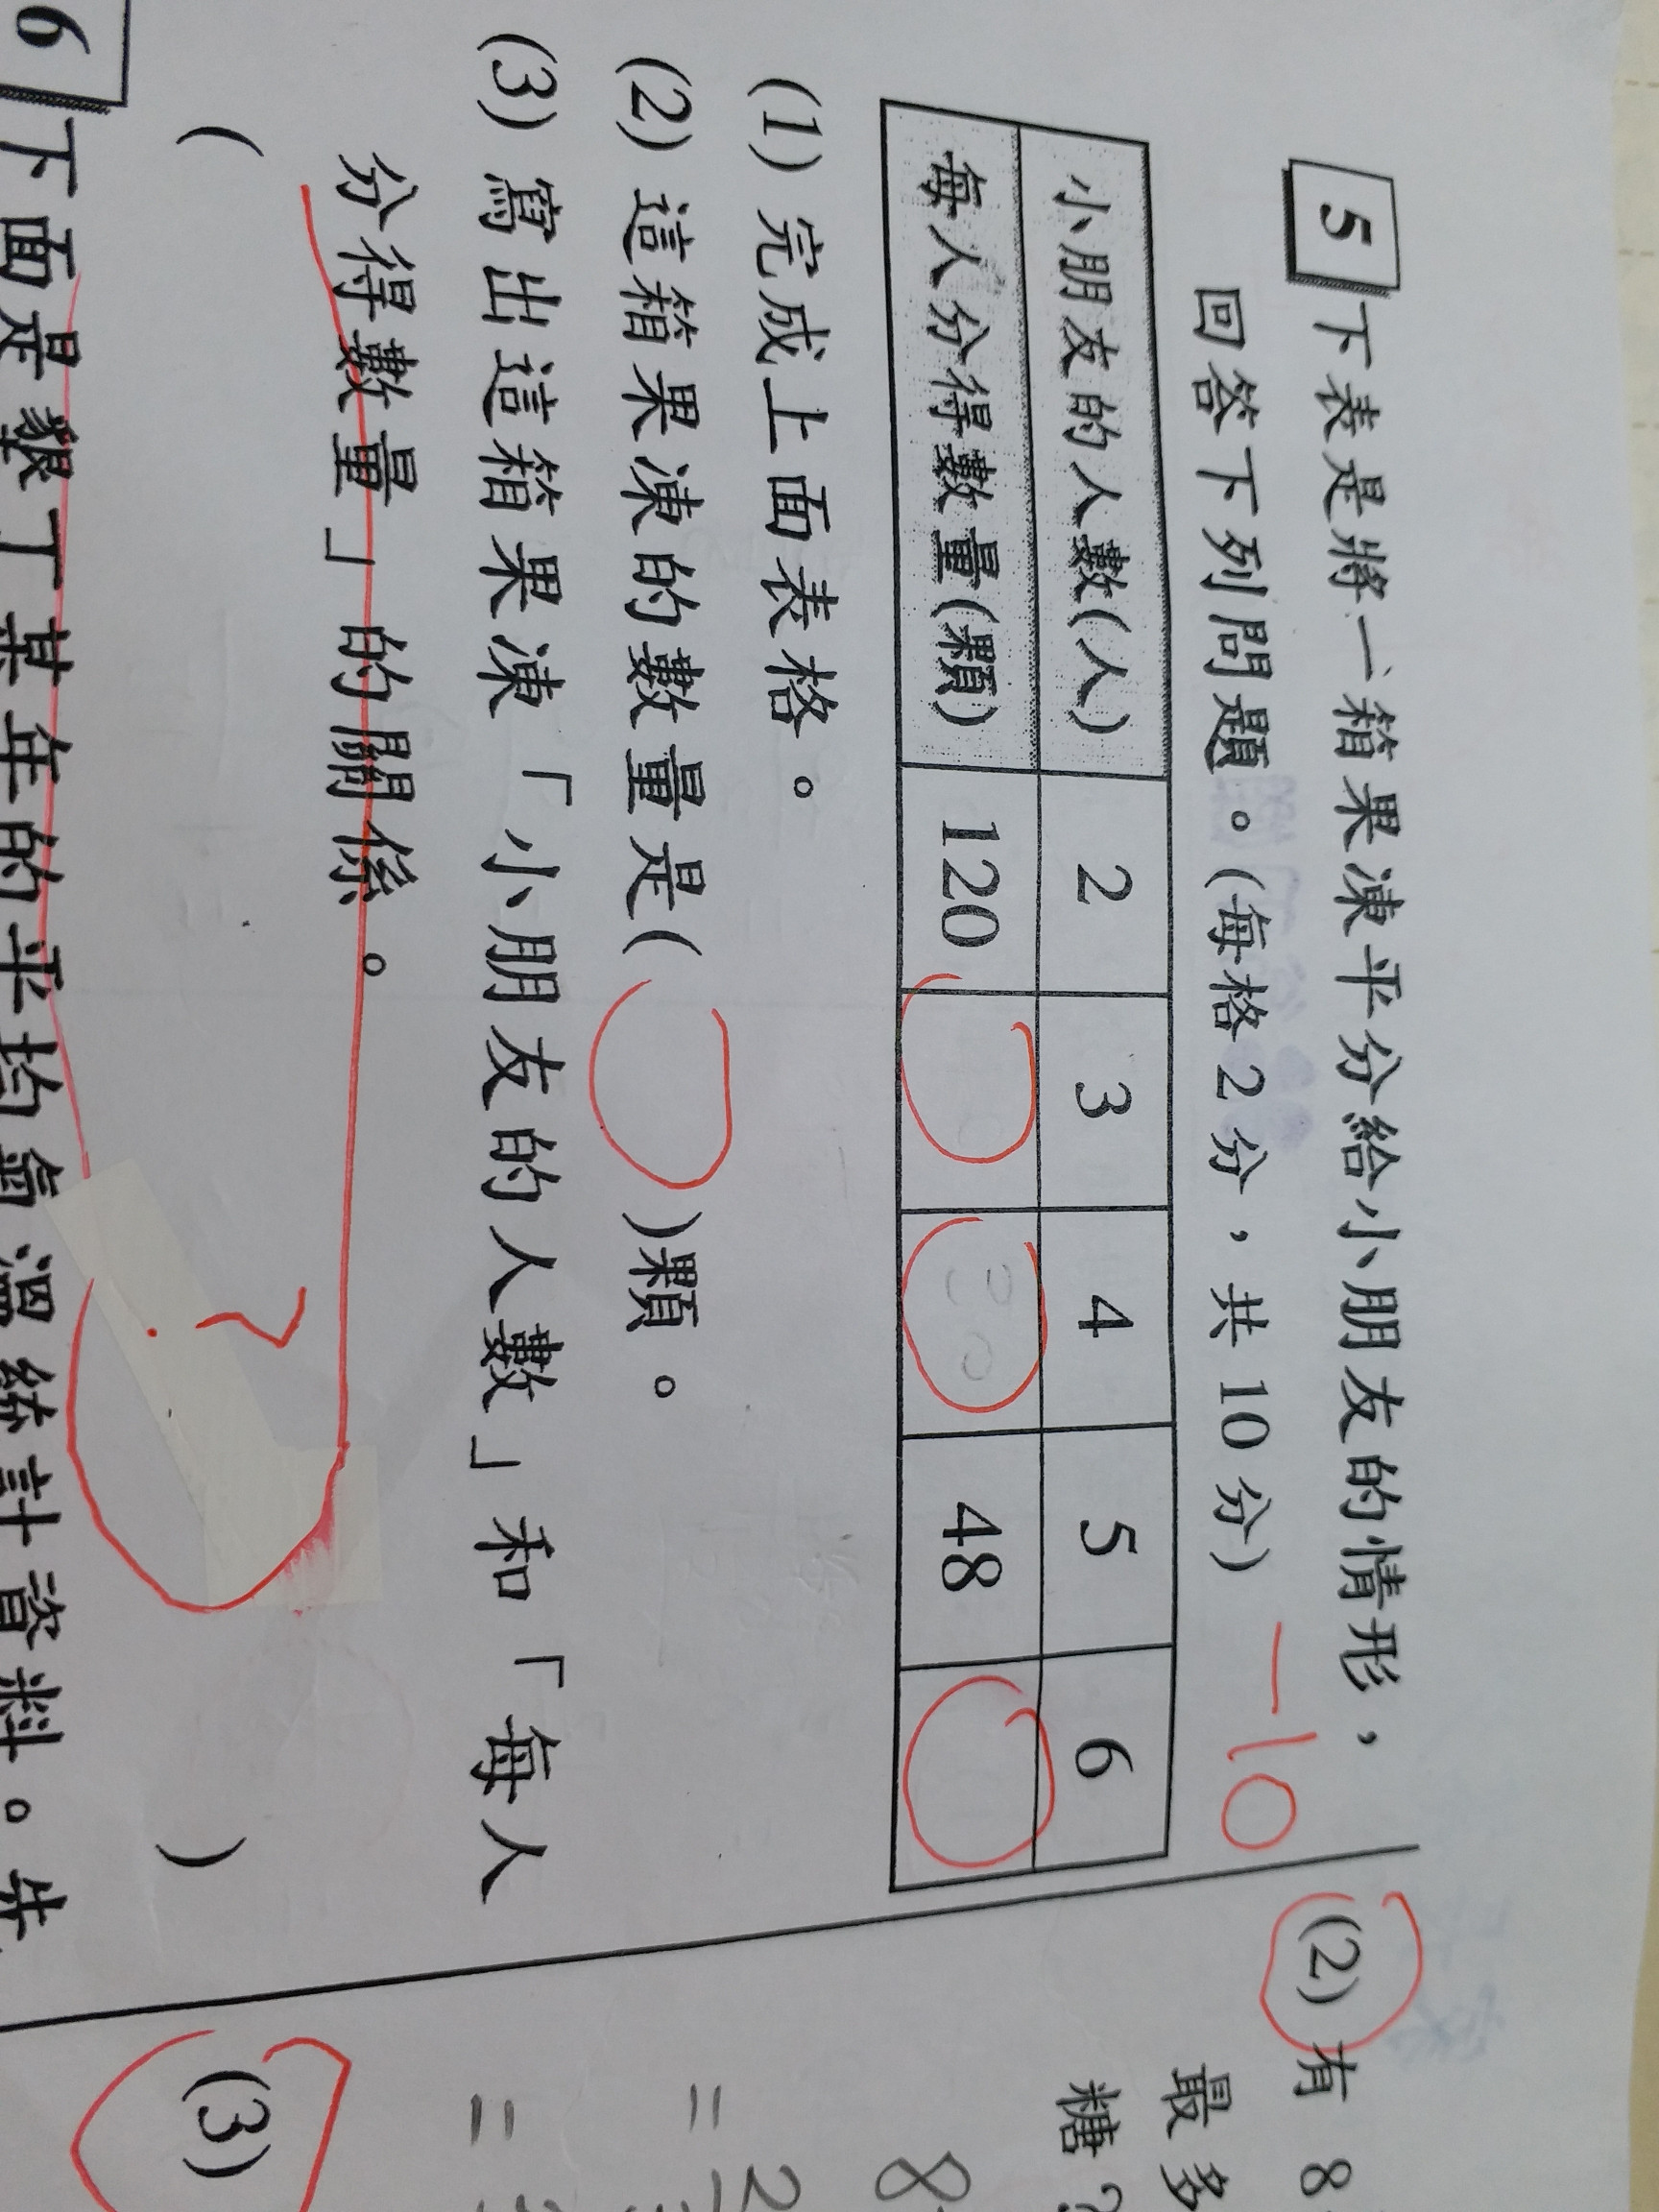 5 下表是將一箱果凍平分給小朋友的情形，
回答下列問題。(每格2分，共10分) -10
小朋友的人數(人) 2 3 4 5 6
每人分得數量(顆) 120 30 48
(1) 完成上面表格。
(2) 這箱果凍的數量是( )顆。
(3) 寫出這箱果凍「小朋友的人數」和「每人
分得數量」的關係。
( ? )
6 下面是
某年的平均氣溫統計資料。
(2) 有 8
最多
糖?
8
= 2
=
(3)